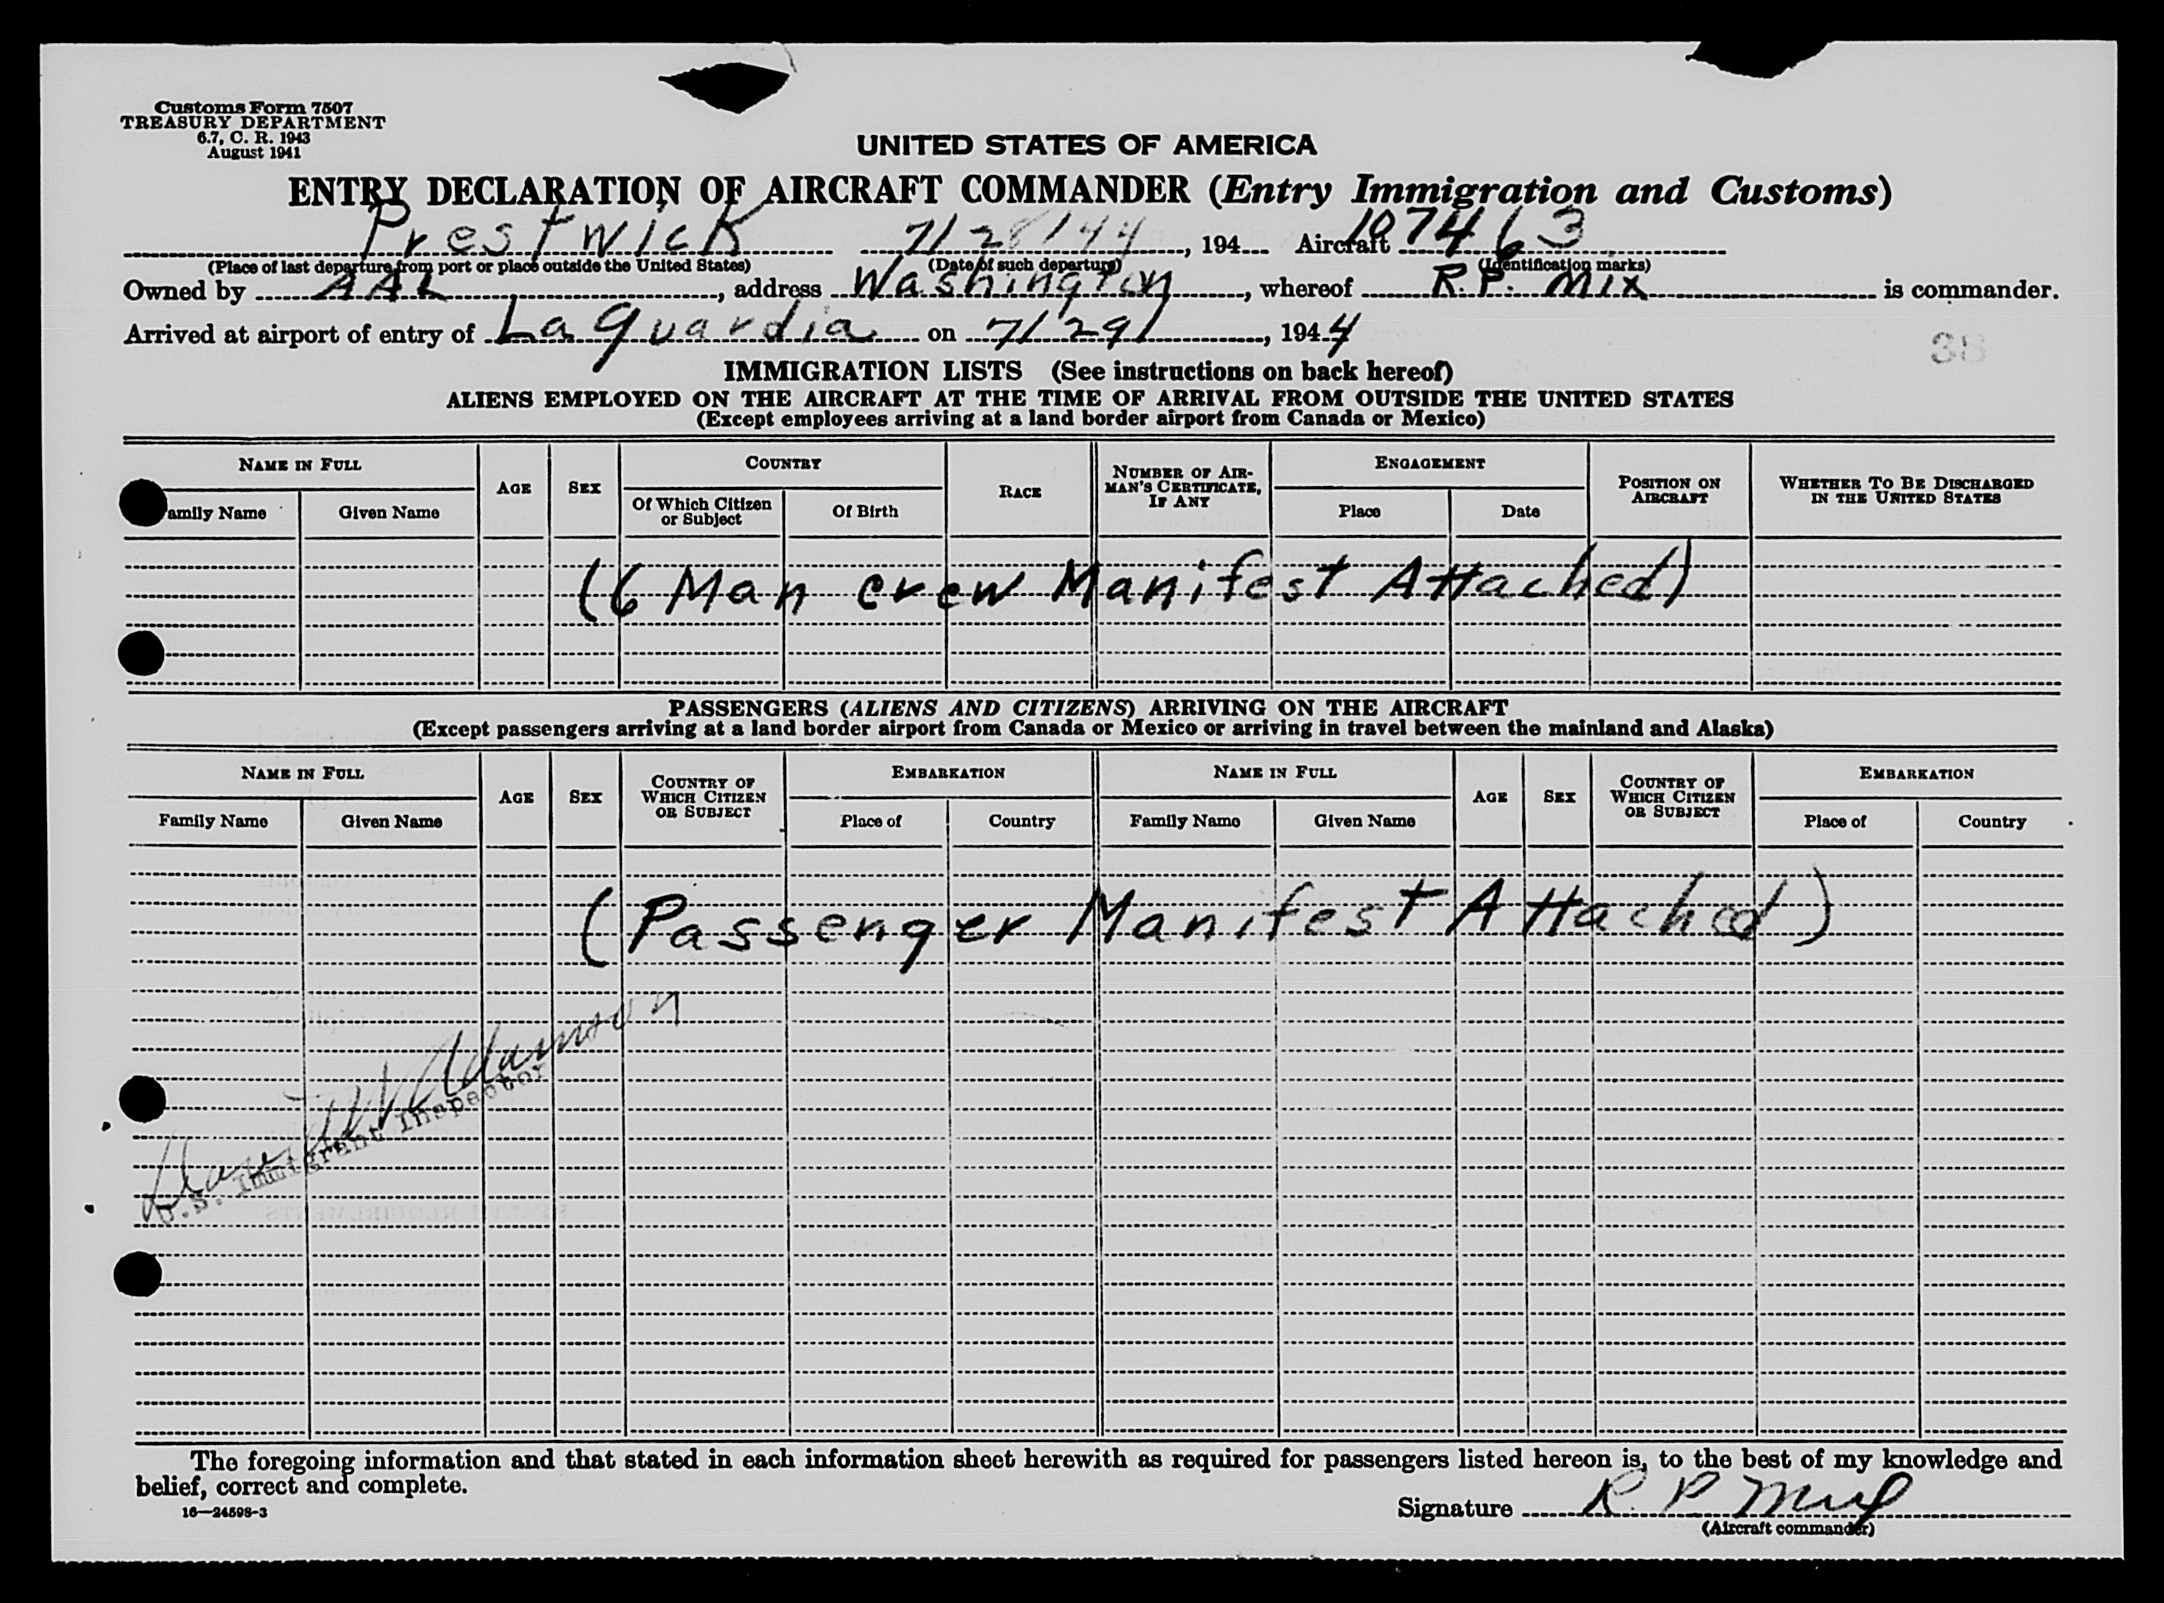 Customs Form 7507
TREASURY DEPARTMENT
6.7, C. R. 1943
August 1941
UNITED STATES OF AMERICA
ENTRY DECLARATION OF AIRCRAFT COMMANDER (Entry Immigration and Customs)
Prestwick 7/28/44, 194 Aircraft 107463
(Place of last departure from port or place outside the United States) (Date of such departure) (Identification marks)
Owned by AAL, address Washington, whereof R.P. Mix is commander.
Arrived at airport of entry of La Guardia on 7/29/, 1944
38
IMMIGRATION LISTS (See instructions on back hereof)
ALIENS EMPLOYED ON THE AIRCRAFT AT THE TIME OF ARRIVAL FROM OUTSIDE THE UNITED STATES
(Except employees arriving at a land border airport from Canada or Mexico)
NAME IN FULL AGE SEX COUNTRY RACE NUMBER OF AIR-MAN'S CERTIFICATE, IF ANY ENGAGEMENT POSITION ON AIRCRAFT WHETHER TO BE DISCHARGED IN THE UNITED STATES
amily Name Given Name Of Which Citizen or Subject Of Birth Place Date
(6 Man crew Manifest Attached)
PASSENGERS (ALIENS AND CITIZENS) ARRIVING ON THE AIRCRAFT
(Except passengers arriving at a land border airport from Canada or Mexico or arriving in travel between the mainland and Alaska)
NAME IN FULL AGE SEX COUNTRY OF WHICH CITIZEN OR SUBJECT EMBARKATION NAME IN FULL AGE SEX COUNTRY OF WHICH CITIZEN OR SUBJECT EMBARKATION
Family Name Given Name Place of Country Family Name Given Name Place of Country
(Passenger Manifest Attached)
Adamson
U.S. Immigrant Inspector
The foregoing information and that stated in each information sheet herewith as required for passengers listed hereon is, to the best of my knowledge and
belief, correct and complete.
16—24598-3
Signature R. P. Mix
(Aircraft commander)